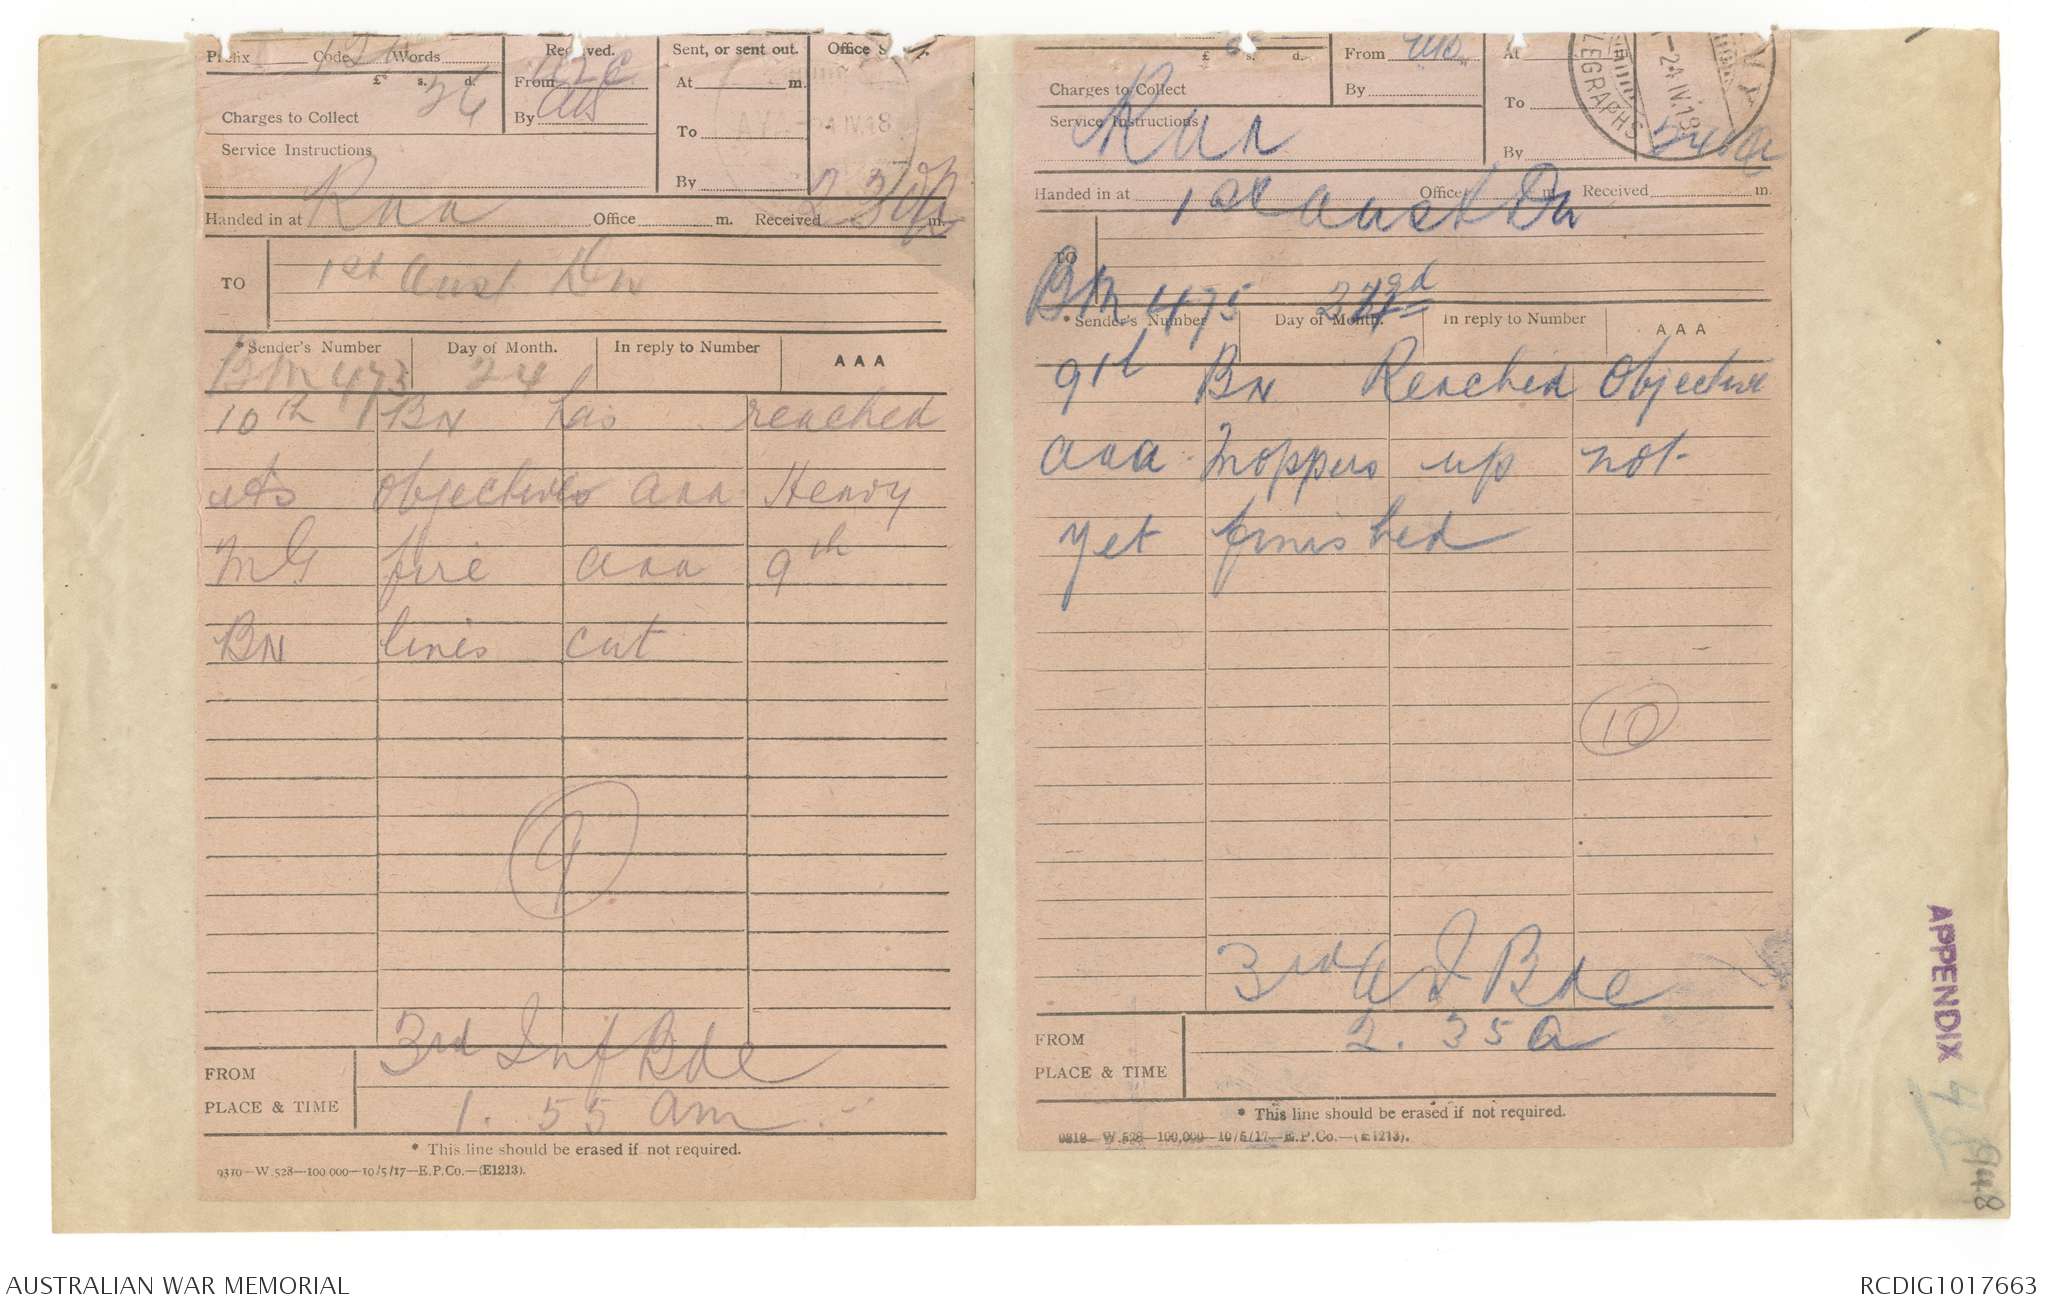 Prefix Code Words
Received.
Sent, or sent out.
Office S
£ s. d.
26
From
At m.
Charges to Collect
By
To
24 IV.18
Service Instructions
By
Handed in at Office m. Received m.
TO
1st Aust Dn
*Sender's Number
Day of Month.
In reply to Number
AAA
BM 473 24
10th BN has reached
its objectives aaa Heavy
MG fire aaa 9th
BN lines cut
9
3rd Inf Bde
FROM
PLACE & TIME
1.55 am
* This line should be erased if not required.
9310—W.528—100,000—10/5/17—E.P.Co.—(E1213).
£ s. d.
From
At
Charges to Collect
By
To
TELEGRAPHS
24.IV.18
Service Instructions
By
Handed in at Office m. Received m.
1st Aust Dn
TO
BM 475
*Sender's Number
Day of Month.
In reply to Number
AAA
9th BN Reached Objective
aaa Moppers up not
yet finished
10
3rd A I Bde
FROM
2.35 a
PLACE & TIME
* This line should be erased if not required.
W.528—100,000—10/5/17—E.P.Co.—(E1213).
APPENDIX
AUSTRALIAN WAR MEMORIAL
RCDIG1017663